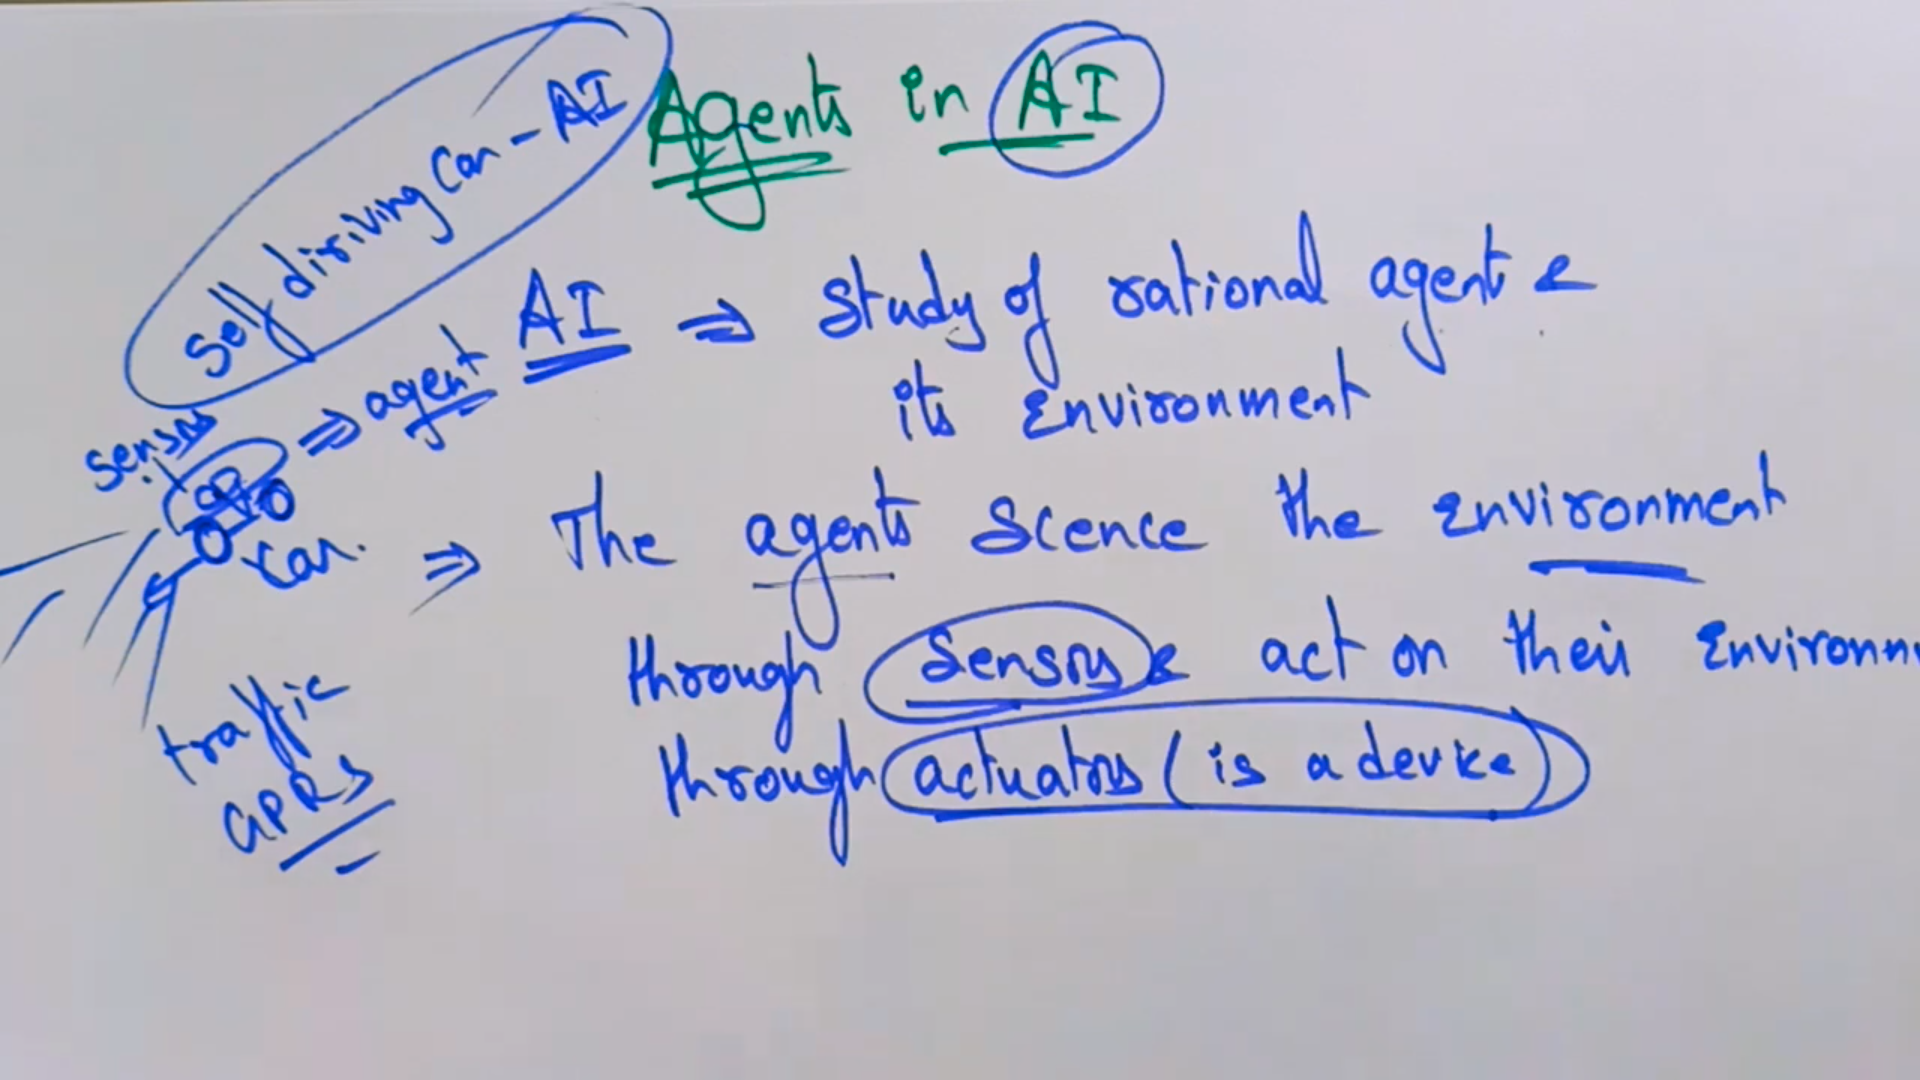 Agents in AI
Self diriving Car - AI
AI ⇒ Study of rational agent &
its Environment
⇒ agent
sensors
car.
⇒ The agents Scence the Environment
through Sensors & act on their Environm
through actuators ( is a device )
traffic
GPRS